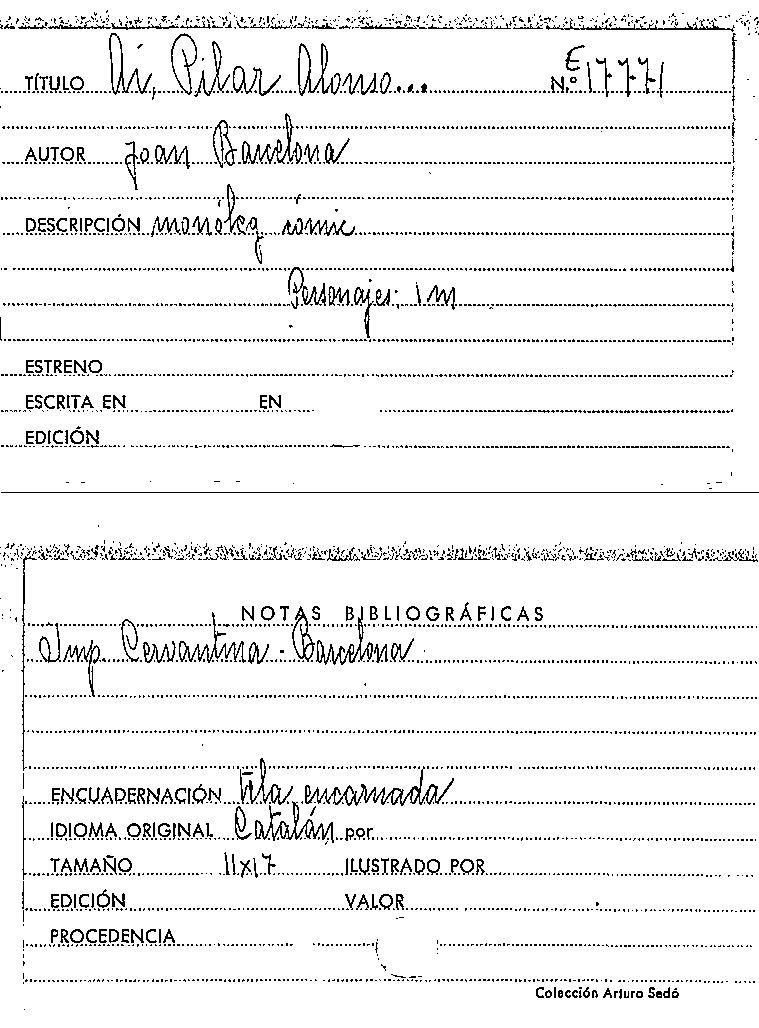 TÍTULO Ai, Pilar Alonso... N.º E 17771
AUTOR Joan Barcelona
DESCRIPCIÓN monóleg còmic
Personajes: 1 m
ESTRENO
ESCRITA EN EN
EDICIÓN
NOTAS BIBLIOGRÁFICAS
Imp. Cervantina - Barcelona
ENCUADERNACIÓN tela encarnada
IDIOMA ORIGINAL Catalán por
TAMAÑO 11x17 ILUSTRADO POR
EDICIÓN VALOR
PROCEDENCIA
Colección Arturo Sedó